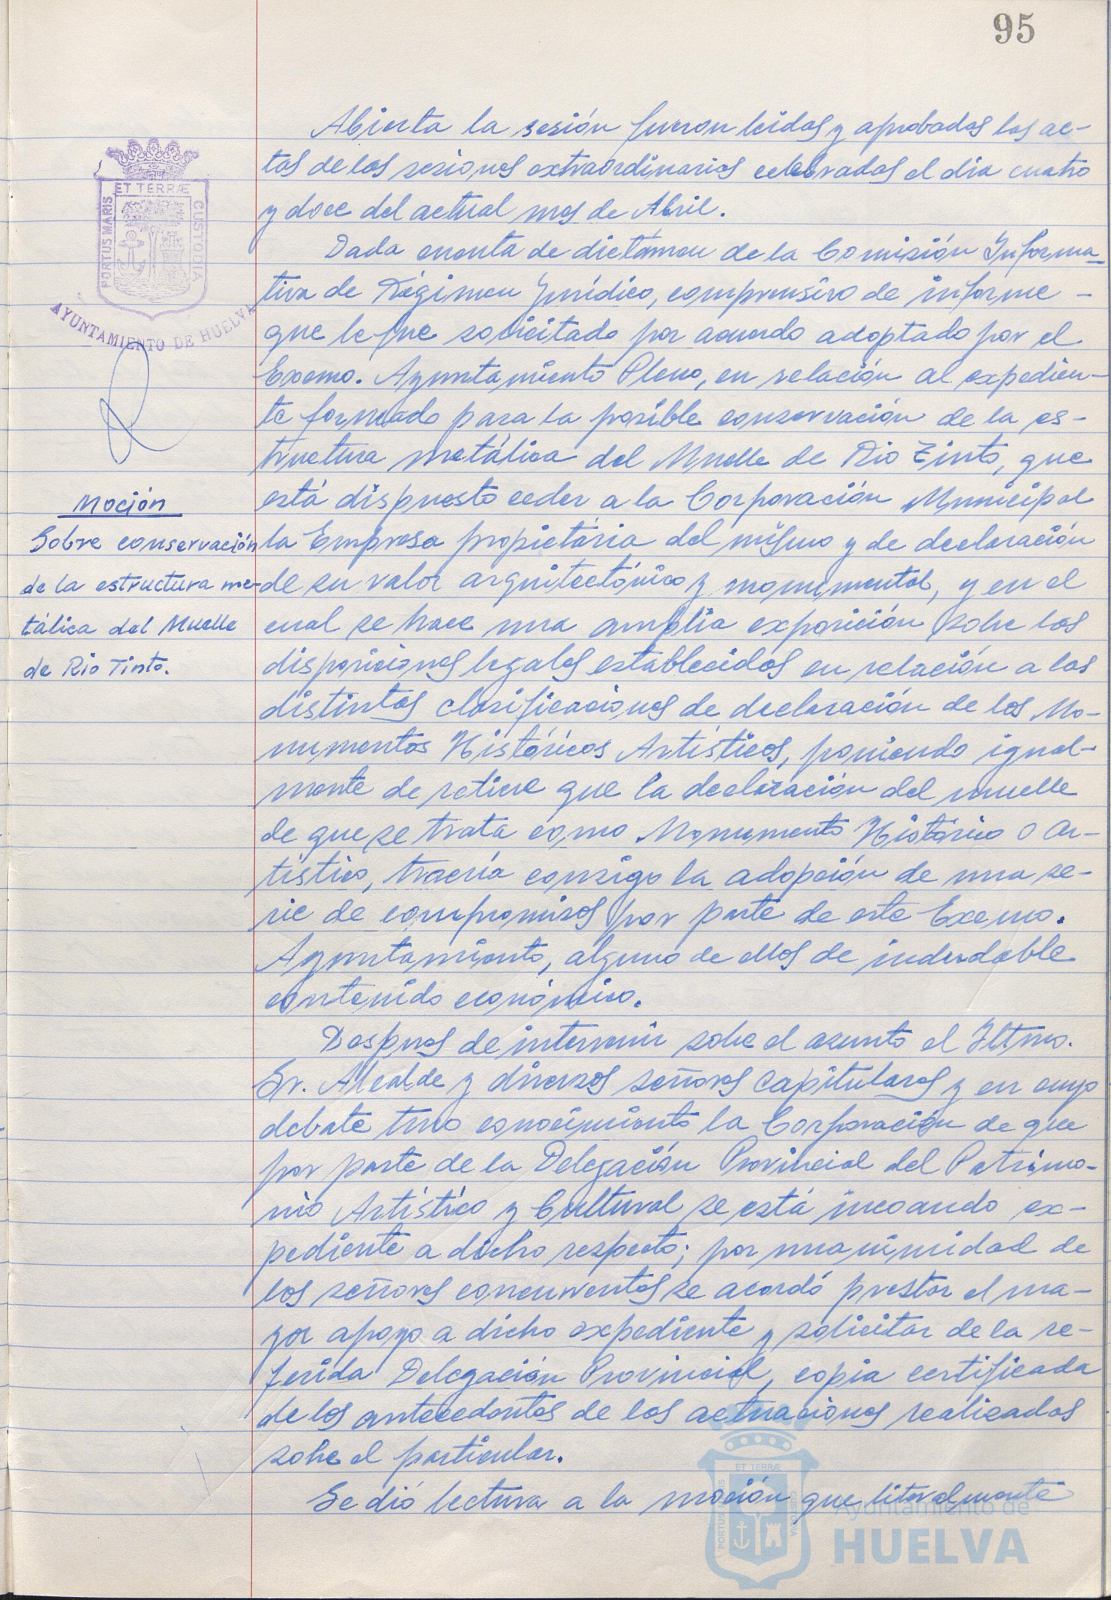 95
Abierta la sesión fueron leidas y aprobadas las ac-
tas de las sesiones extraordinarias celebradas el dia cuatro
y doce del actual mes de Abril.
Dada cuenta de dictámen de la Comisión Informa-
tiva de Régimen Jurídico, comprensivo de informe -
que le fue solicitado por acuerdo adoptado por el
Excmo. Ayuntamiento Pleno, en relación al expedien-
te formado para la posible conservación de la es-
tructura metálica del Muelle de Rio Tinto, que
está dispuesto ceder a la Corporación Municipal
la Empresa propietária del mismo y de declaración
de su valor arquitectónico y monumental, y en el
cual se hace una amplia exposición sobre las
disposiciones legales establecidas en relación a las
distintas clasificaciones de declaración de los Mo-
numentos Históricos Artísticos, poniendo igual-
mente de relieve que la declaración del muelle
de que se trata como Monumento Histórico o Ar-
tístico, traería consigo la adopción de una se-
rie de compromisos por parte de este Excmo.
Ayuntamiento, alguno de ellos de indudable
contenido económico.
Despues de intervenir sobre el asunto el Iltmo.
Sr. Alcalde y diversos señores Capitulares y en cuyo
debate tuvo conocimiento la Corporación de que
por parte de la Delegación Provincial del Patrimo-
nio Artístico y Cultural se está incoando ex-
pediente a dicho respecto; por unanimidad de
los señores concurrentes se acordó prestar el ma-
yor apoyo a dicho expediente y solicitar de la re-
ferida Delegación Provincial, copia certificada
de los antecedentes de las actuaciones realizadas
sobre el particular.
Se dió lectura a la moción que literalmente
PORTUS MARIS
ET TERRÆ
CUSTODIA
AYUNTAMIENTO DE HUELVA
Moción
Sobre conservación
de la estructura me-
tálica del Muelle
de Rio Tinto.
Ayuntamiento de
HUELVA